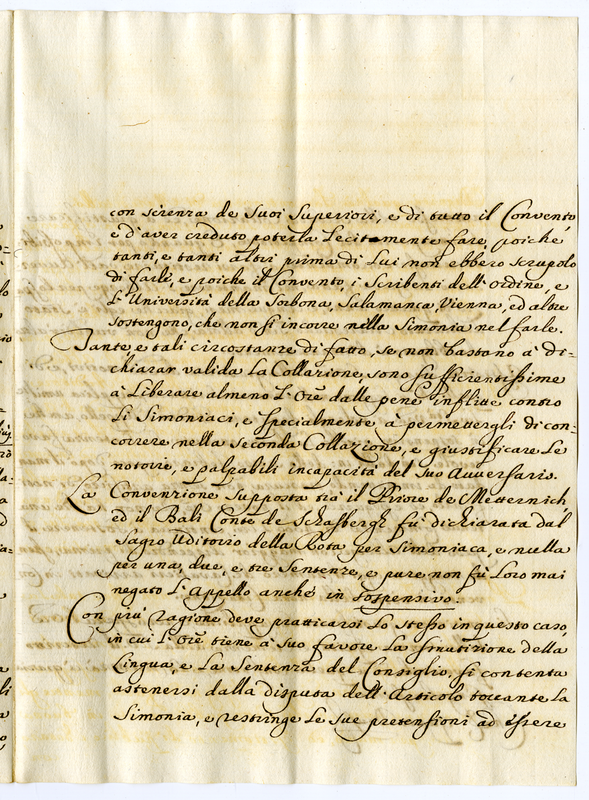 con scienza de Suoi Superiori, e di tutto il Convento
e d'aver creduto poterla Lecitamente fare, poiche
tanti, e tanti altri prima di Lui non ebbero scrupolo
di farle, e poiche il Convento, i Scribenti dell'Ordine, e
L'Università della Sorbona, Salamanca, Vienna, ed altre
sostengono, che non si incorre nella Simonia nel farle.
Tante, e tali circostanze di fatto, se non bastano à di-
chiarar valida La Collazione, sono sufficientissime
à Liberare almeno L'Ore dalle pene inflitte contro
Li Simoniaci, e specialmente à permettergli di con-
correre nella seconda Collazione, e giustificare Le
notorie, e palpabili incapacità del suo Avversario.
La Convenzione supposta trà il Priore de Metternich,
ed il Bali Conte de Schasbergh fù dichiarata dal
Sagro Uditorio della Rota per Simoniaca, e nulla
per una, due, e tre Sentenze, e pure non fù Loro mai
negato L'Appello anche in sospensivo.
Con più ragione deve pratticarsi Lo stesso in questo caso,
in cui L'Ore tiene à suo favore La smutizione della
Lingua, e La Sentenza del Consiglio, si contenta
astenersi dalla disputa dell'Articolo toccante La
Simonia, e restringe Le sue pretensioni ad essere